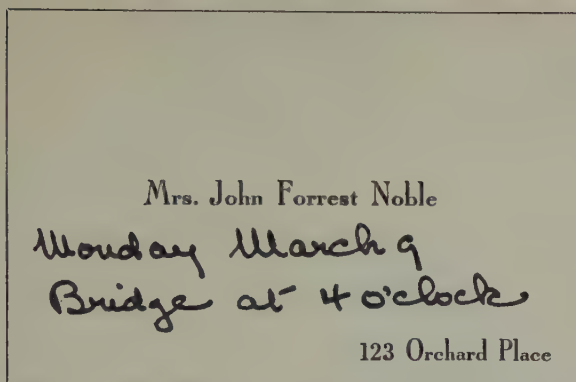 Mrs. John Forrest Noble
Monday March 9
Bridge at 4 o'clock
123 Orchard Place